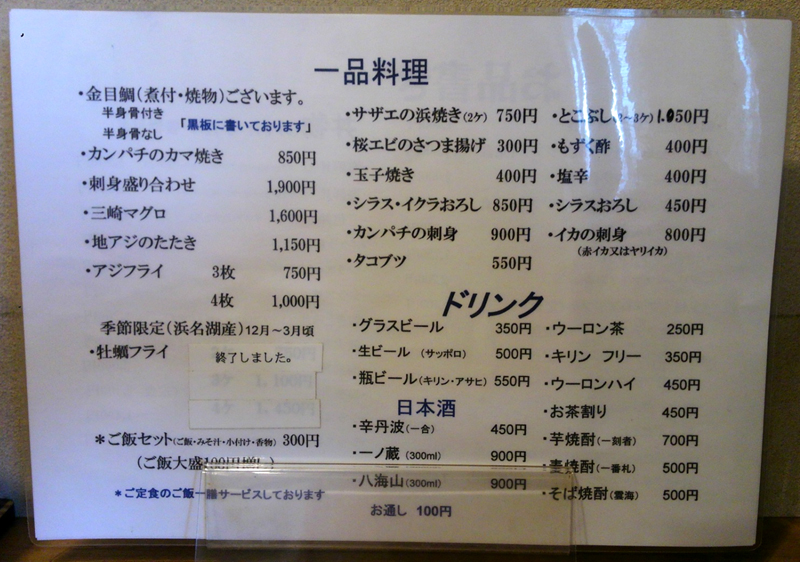 一品料理
・金目鯛(煮付・焼物)ございます。
半身骨付き
半身骨なし
「黒板に書いております」
・カンパチのカマ焼き 850円
・刺身盛り合わせ 1,900円
・三崎マグロ 1,600円
・地アジのたたき 1,150円
・アジフライ 3枚 750円
4枚 1,000円
季節限定(浜名湖産)12月~3月頃
・牡蠣フライ 終了しました。
*ご飯セット(ご飯・みそ汁・小付け・香物) 300円
(ご飯大盛100円増し)
*ご定食のご飯一膳サービスしております
・サザエの浜焼き(2ケ) 750円
・桜エビのさつま揚げ 300円
・玉子焼き 400円
・シラス・イクラおろし 850円
・カンパチの刺身 900円
・タコブツ 550円
・とこぶし(2~3ケ) 1.050円
・もずく酢 400円
・塩辛 400円
・シラスおろし 450円
・イカの刺身 800円
(赤イカ又はヤリイカ)
ドリンク
・グラスビール 350円
・生ビール (サッポロ) 500円
・瓶ビール(キリン・アサヒ) 550円
日本酒
・辛丹波(一合) 450円
・一ノ蔵 (300ml) 900円
・八海山(300ml) 900円
・ウーロン茶 250円
・キリン フリー 350円
・ウーロンハイ 450円
・お茶割り 450円
・芋焼酎(一刻者) 700円
・麦焼酎(一番札) 500円
・そば焼酎(雲海) 500円
お通し 100円